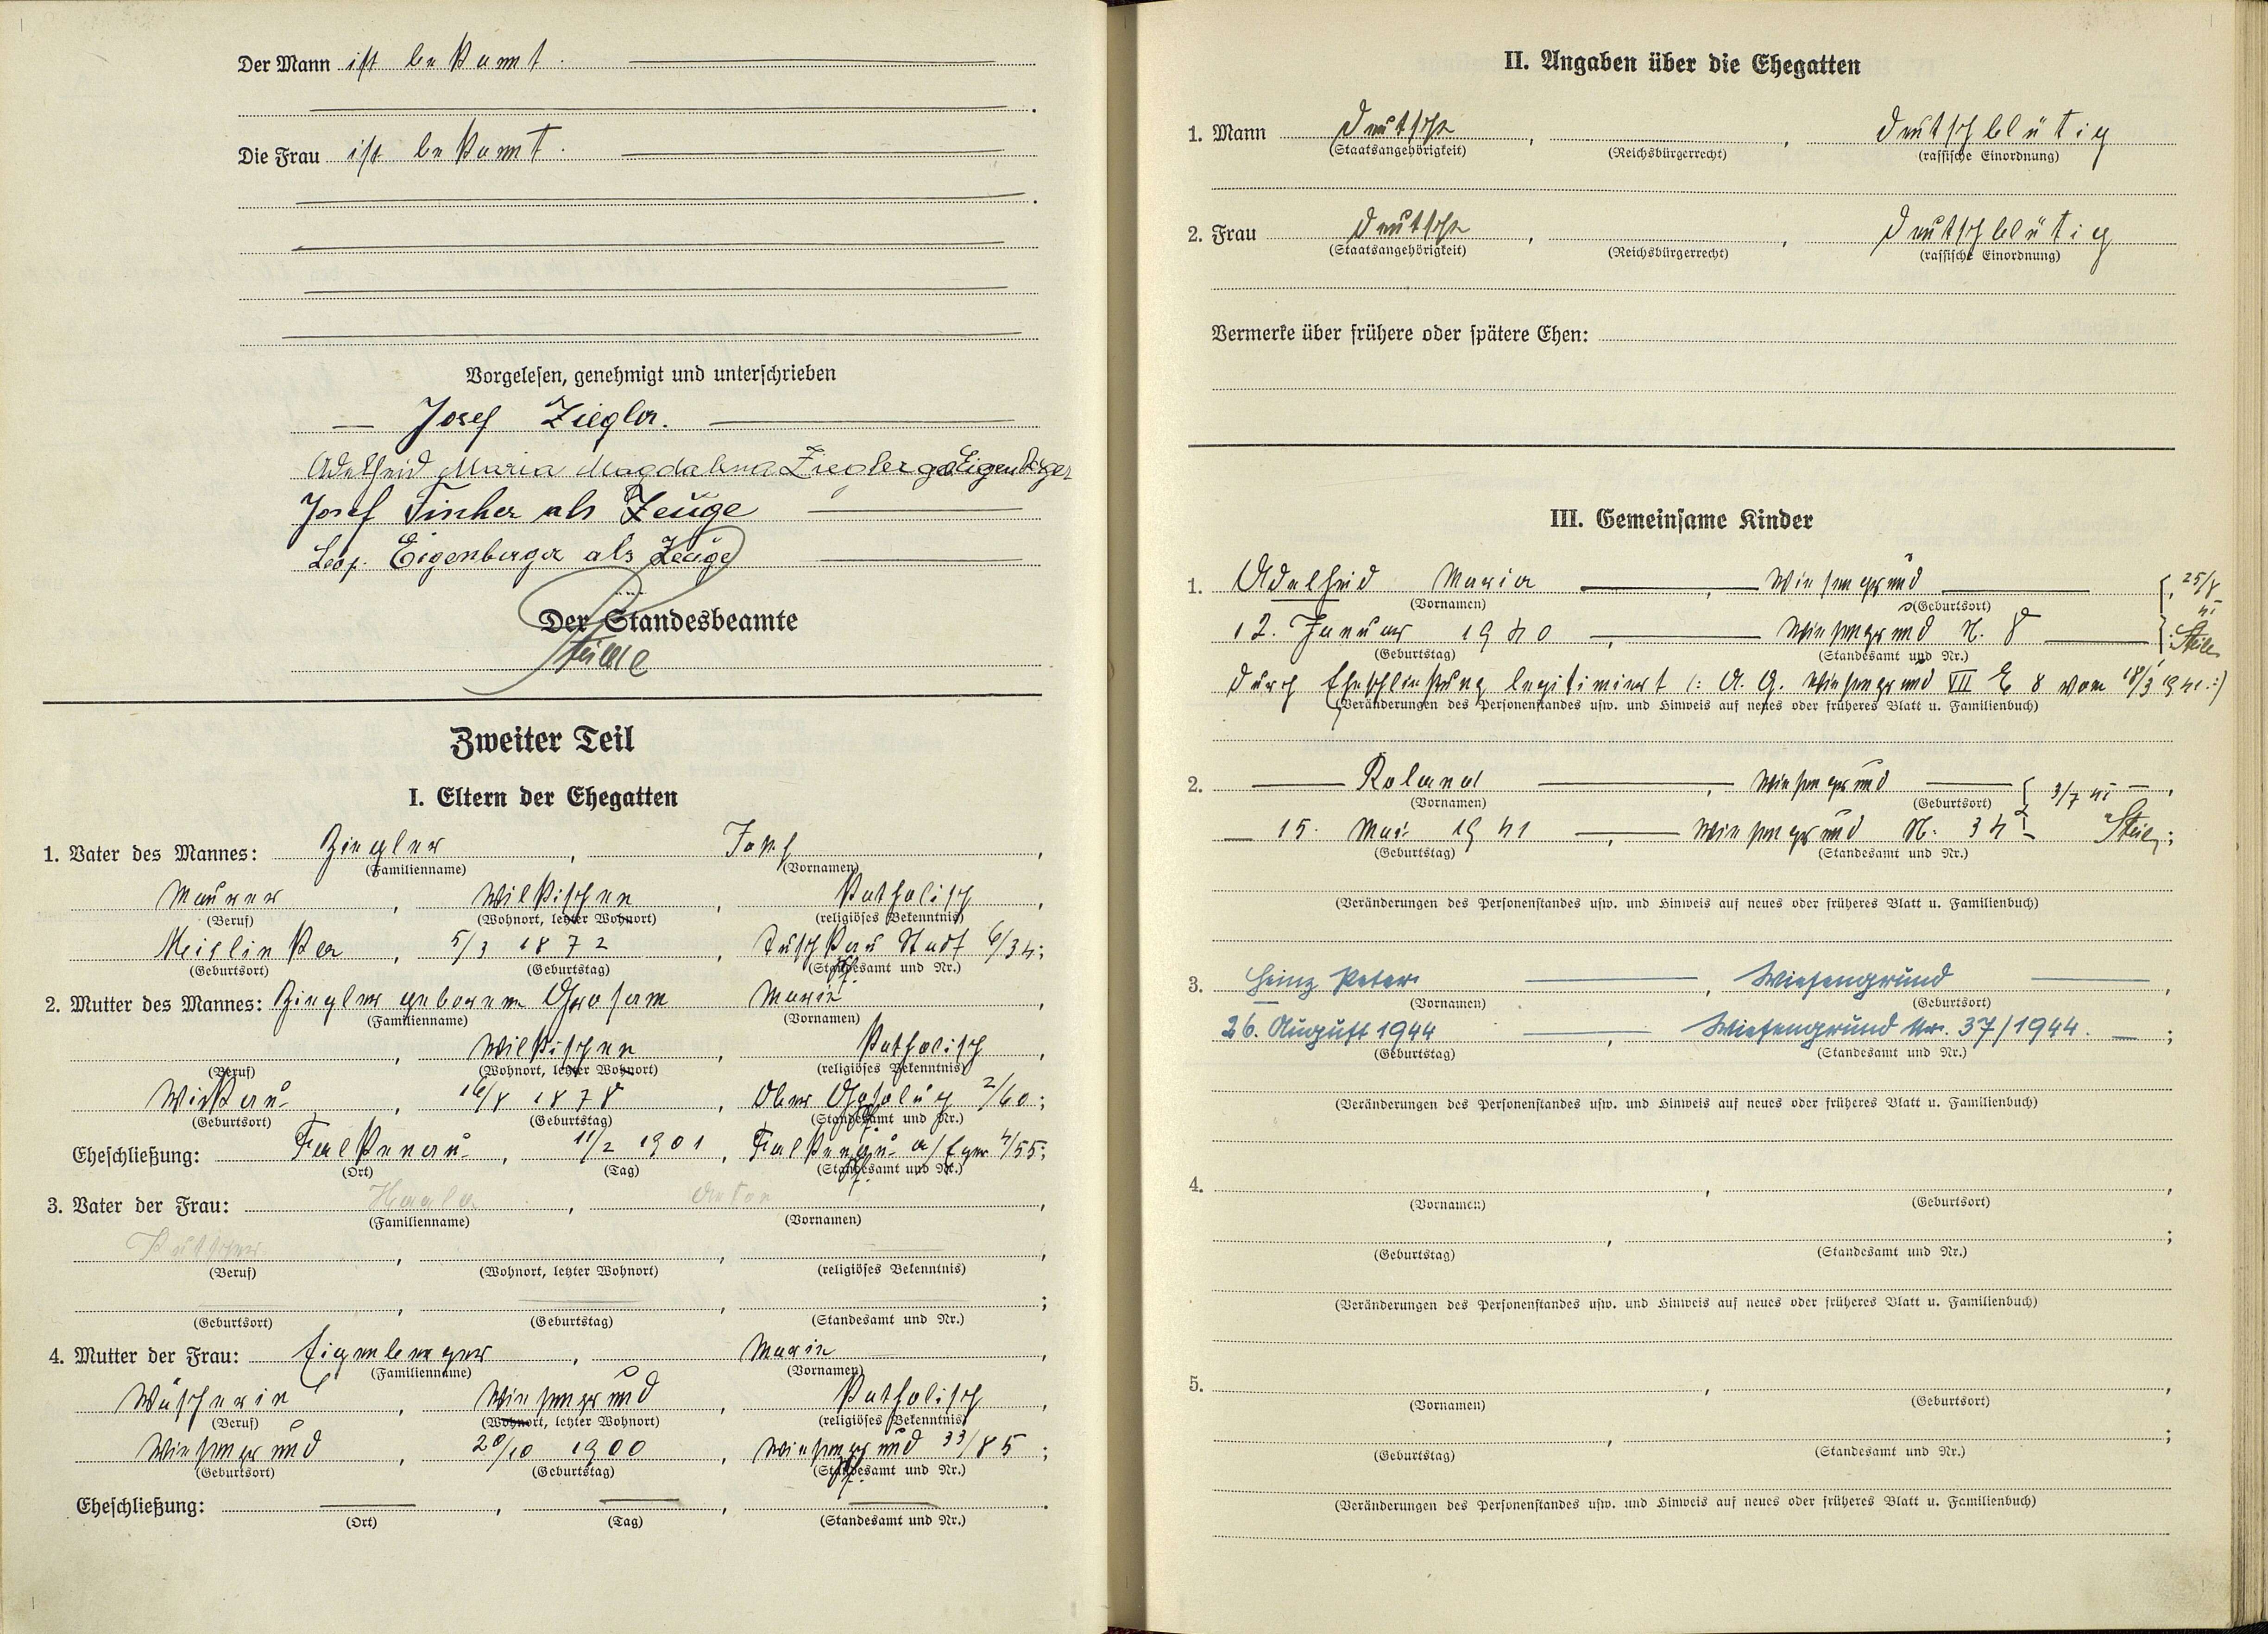 Der Mann ist bekannt.
Die Frau ist bekannt.
Vorgelesen, genehmigt und unterschrieben
Josef Ziegler.
Adelheid Maria Magdalena Ziegler geb Eigenberger
Josef Fischer als Zeuge
Leop. Eigenberger als Zeuge
Der Standesbeamte
Zweiter Teil
I. Eltern der Ehegatten
1. Vater des Mannes: Ziegler, Josef,
(Familienname) (Vornamen)
Maurer, Wilkischen, katholisch,
(Beruf) (Wohnort, letzter Wohnort) (religiöses Bekenntnis)
5/3 1872, Tuschkau Stadt 6/34;
(Geburtsort) (Geburtstag) (Standesamt und Nr.)
2. Mutter des Mannes: Ziegler geborene Marie,
(Familienname) (Vornamen)
, Wilkischen, katholisch,
(Beruf) (Wohnort, letzter Wohnort) (religiöses Bekenntnis)
Wirkau, 16/8 1878, Ober 2/60;
(Geburtsort) (Geburtstag) (Standesamt und Nr.)
Eheschließung: Falkenau, 11/2 1901, Falkenau a/Eger 4/55;
(Ort) (Tag) (Standesamt und Nr.)
3. Vater der Frau: , Anton,
(Familienname) (Vornamen)
Kutscher, , ,
(Beruf) (Wohnort, letzter Wohnort) (religiöses Bekenntnis)
, , ;
(Geburtsort) (Geburtstag) (Standesamt und Nr.)
4. Mutter der Frau: Eigenberger, Marie,
(Familienname) (Vornamen)
Wäscherin, Wiesengrund, katholisch,
(Beruf) (Wohnort, letzter Wohnort) (religiöses Bekenntnis)
Wiesengrund, 20/10 1900, Wiesengrund 33/85;
(Geburtsort) (Geburtstag) (Standesamt und Nr.)
Eheschließung: , , .
(Ort) (Tag) (Standesamt und Nr.)
II. Angaben über die Ehegatten
1. Mann deutsche, , deutschblütig
(Staatsangehörigkeit) (Reichsbürgerrecht) (rassische Einordnung)
2. Frau deutsche, , deutschblütig
(Staatsangehörigkeit) (Reichsbürgerrecht) (rassische Einordnung)
Vermerke über frühere oder spätere Ehen:
III. Gemeinsame Kinder
1. Adelheid Maria, Wiesengrund 25/8 41
(Vornamen) (Geburtsort)
12. Januar 1940, Wiesengrund N. 8
(Geburtstag) (Standesamt und Nr.)
durch Eheschließung legitimiert (: A. G. Wiesengrund VII 8 vom 18/3 1941.:)
(Veränderungen des Personenstandes usw. und Hinweis auf neues oder früheres Blatt u. Familienbuch)
2. Roland, Wiesengrund 3/7 41,
(Vornamen) (Geburtsort)
15. Mai 1941, Wiesengrund N. 34;
(Geburtstag) (Standesamt und Nr.)
(Veränderungen des Personenstandes usw. und Hinweis auf neues oder früheres Blatt u. Familienbuch)
3. Heinz Peter, Wiesengrund,
(Vornamen) (Geburtsort)
26. August 1944, Wiesengrund Nr. 37/1944. ;
(Geburtstag) (Standesamt und Nr.)
(Veränderungen des Personenstandes usw. und Hinweis auf neues oder früheres Blatt u. Familienbuch)
4. , ,
(Vornamen) (Geburtsort)
, ;
(Geburtstag) (Standesamt und Nr.)
(Veränderungen des Personenstandes usw. und Hinweis auf neues oder früheres Blatt u. Familienbuch)
5. , ,
(Vornamen) (Geburtsort)
, ;
(Geburtstag) (Standesamt und Nr.)
(Veränderungen des Personenstandes usw. und Hinweis auf neues oder früheres Blatt u. Familienbuch)